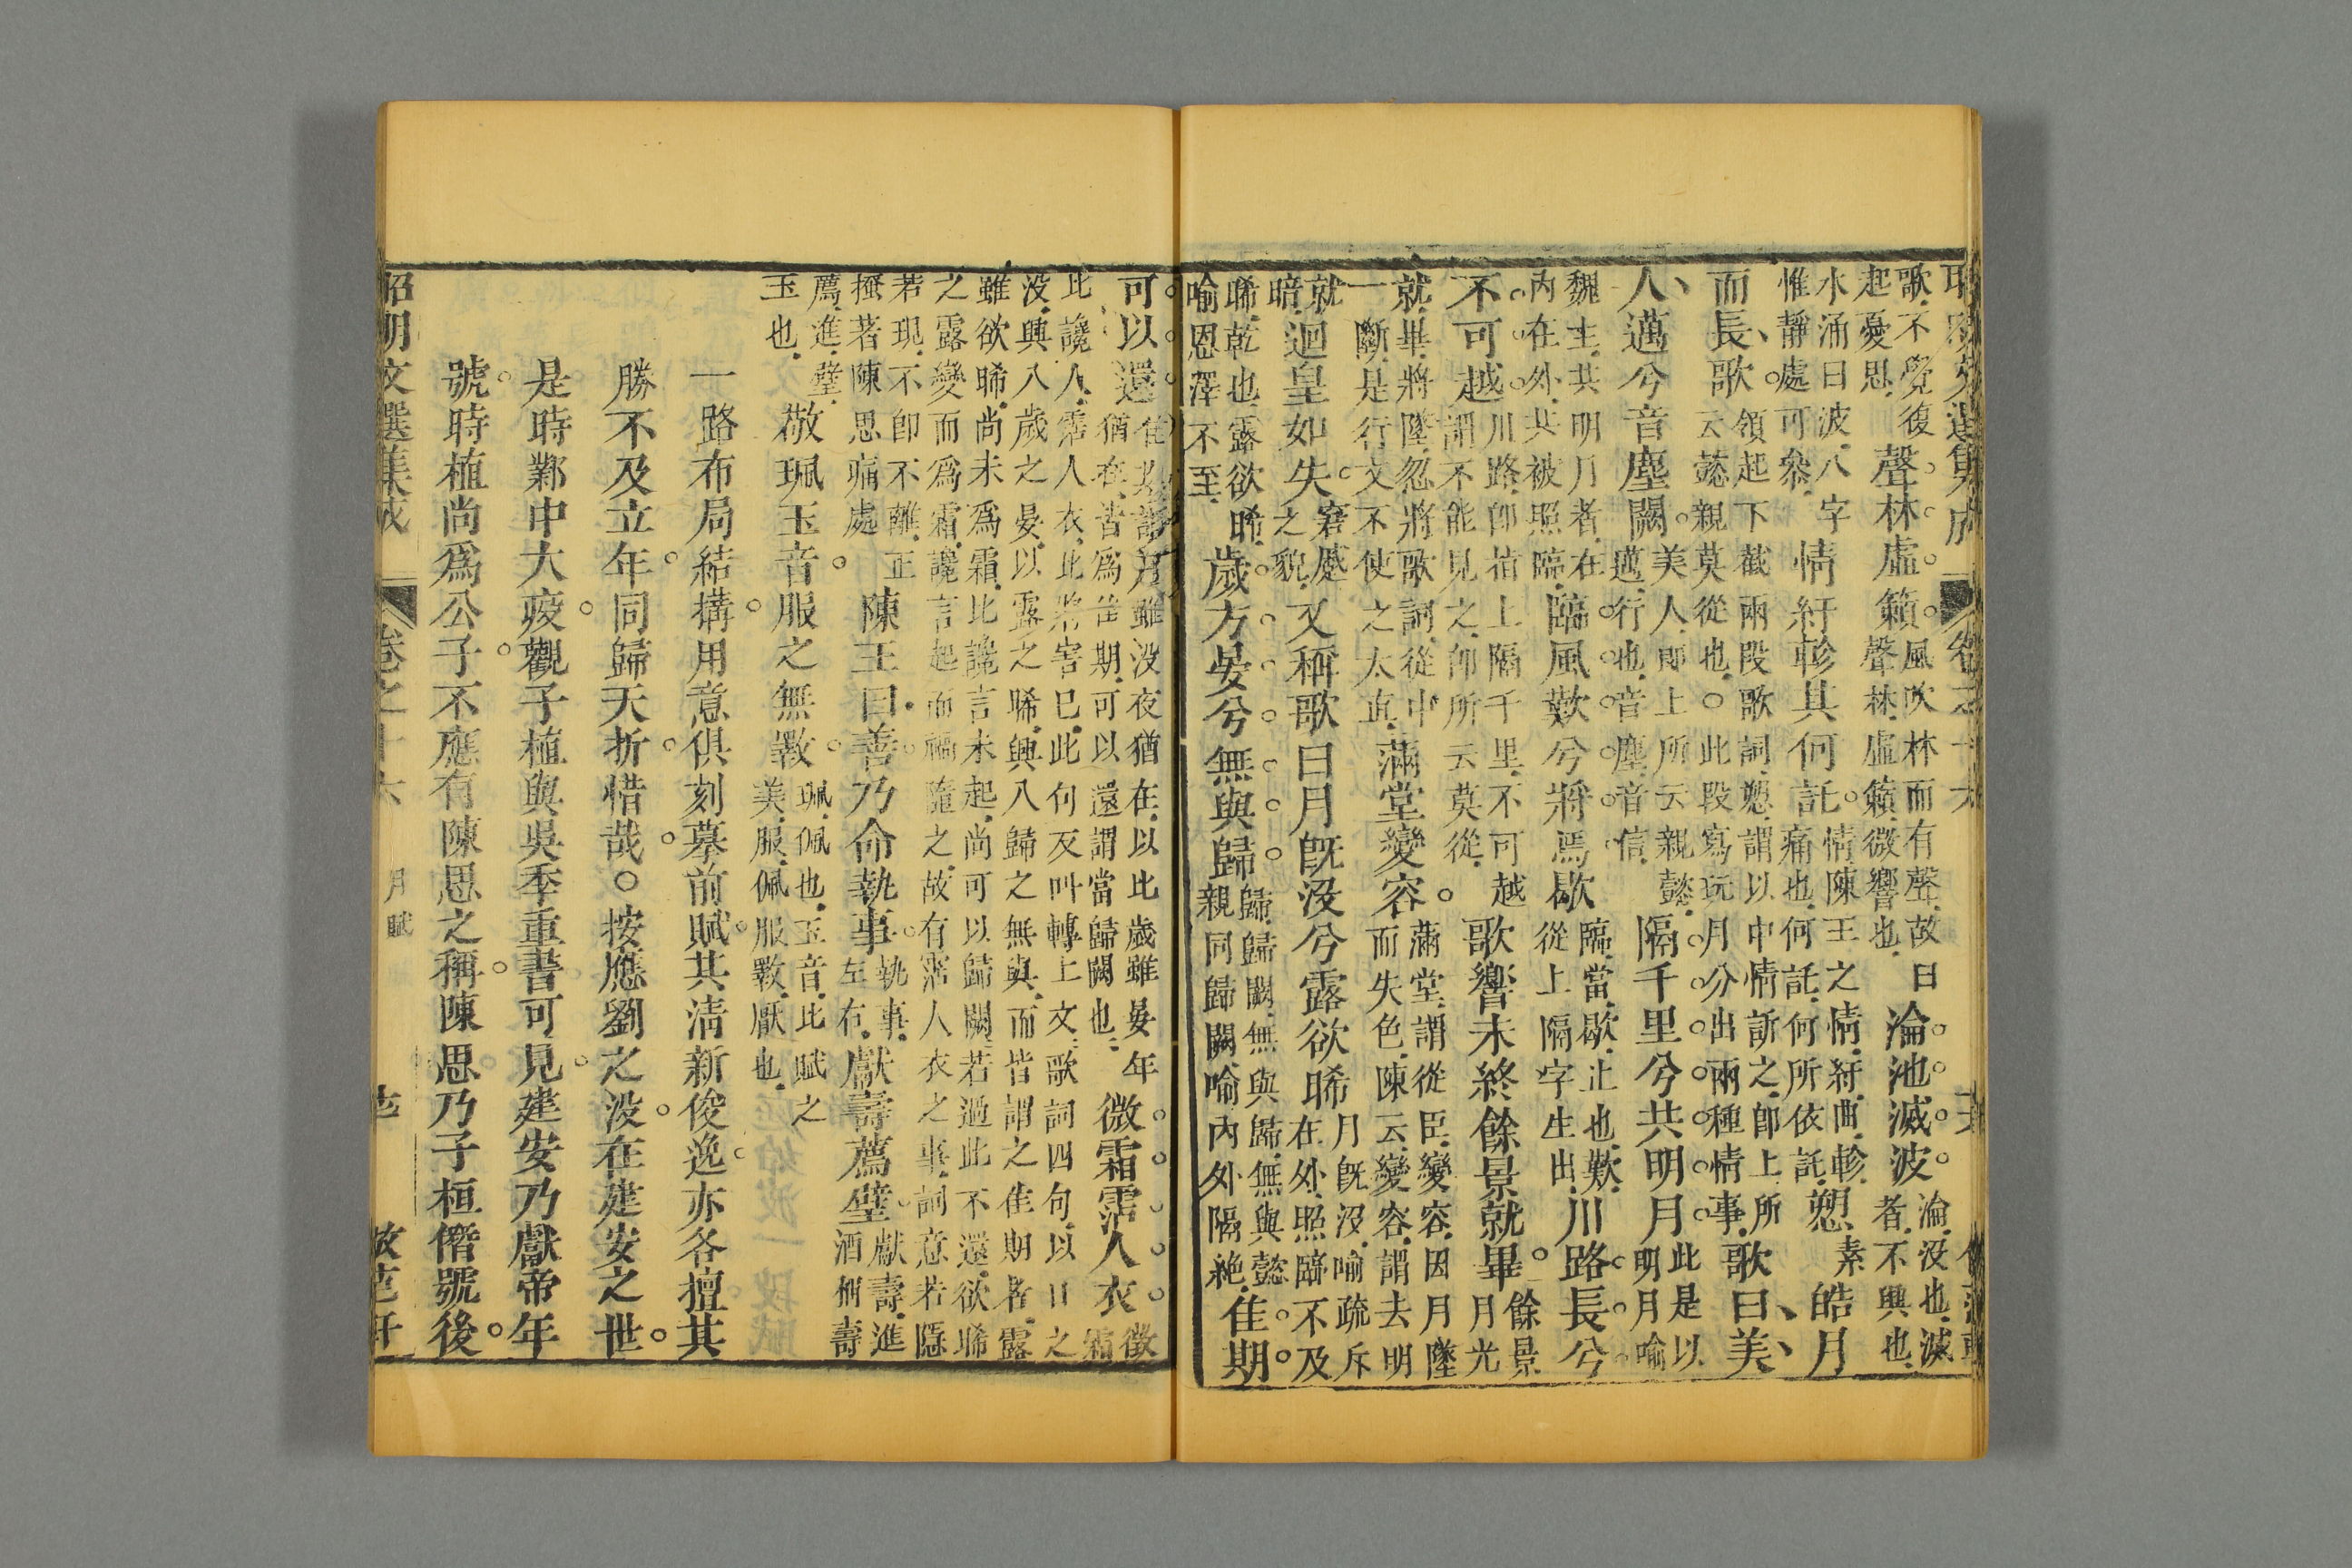 歌不覺復起憂思聲林虛籟風吹林而有聲故曰聲林虛籟微響也淪池滅波淪沒也滅者不興也
水涌曰波八字惟靜處可參情紆軫其何託情陳王之情紆曲軫痛也何託何所依託愬素皓月
而長歌領起下截兩段歌詞愬謂以中情訴之卽上所云懿親莫從也○此段寫玩月分出兩種情事歌曰美
人邁兮音塵闕美人卽上所云親懿邁行也音塵音信隔千里兮共明月此是以明月喻
魏主共明月者在內在外共被照臨臨風歎兮將焉歇臨當歇止也歎從上隔字生出川路長兮
不可越川路卽指上隔千里不可越謂不能見之卽所云莫從歌響未終餘景就畢餘景月光
就畢將墜忽將歌詞從中一斷是行文不使之太直滿堂變容滿堂謂從臣變容因月墜而失色陳云變容謂去明
就暗迴皇如失窘蹙之貌又稱歌曰月旣沒兮露欲晞月旣沒喻疏斥在外照臨不及
晞乾也露欲晞喻恩澤不至歲方晏兮無與歸歸歸闕無與歸無與懿親同歸闕喻內外隔絕佳期
可以還佳期謂月雖沒夜猶在以比歲雖晏年猶在皆爲佳期可以還謂當歸闕也微霜霑人衣微霜
比讒人霑人衣比將害已此句反叫轉上文歌詞四句以日之
沒興八歲之晏以露之晞興八歸之無與而皆謂之佳期者露
雖欲晞尚未爲霜比讒言未起尚可以歸闕若過此不還欲晞
之露變而爲霜讒言起而禍隨之故有霑人衣之事詞意若隱
若現不卽不離正搔著陳思痛處陳王曰善乃命執事執事左右獻壽薦璧獻壽進酒稱壽
薦進璧玉也敬珮玉音服之無斁珮佩也玉音比賦之美服佩服斁厭也
一路布局結搆用意俱刻摹前賦其清新俊逸亦各擅其
勝不及立年同歸夭折惜哉○按應劉之沒在建安之世
是時鄴中大疫觀子植與吳季重書可見建安乃獻帝年
號時植尚爲公子不應有陳思之稱陳思乃子桓僭號後
昭明文選集成 卷之十六 月賦